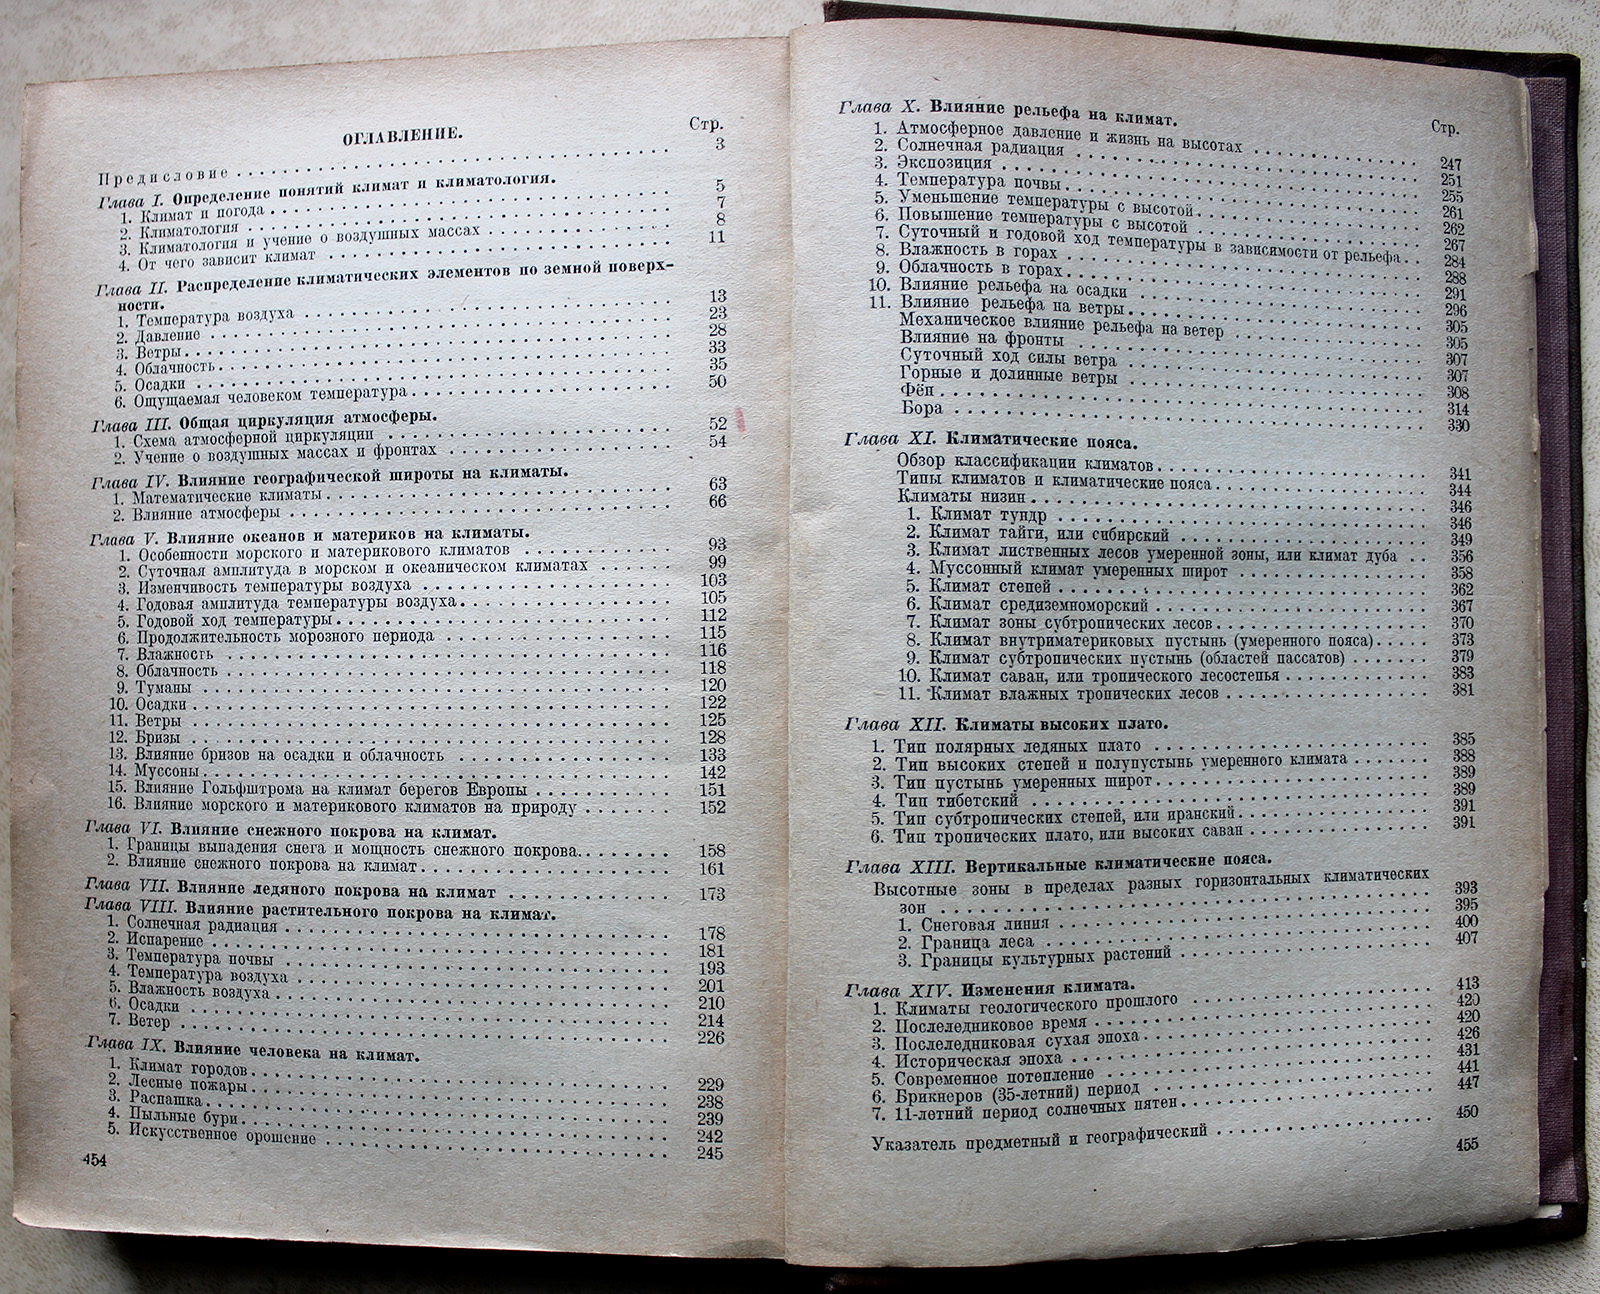 ОГЛАВЛЕНИЕ.
Стр.
Предисловие . . . 3
Глава I. Определение понятий климат и климатология.
1. Климат и погода . . . 5
2. Климатология . . . 7
3. Климатология и учение о воздушных массах . . . 8
4. От чего зависит климат . . . 11
Глава II. Распределение климатических элементов по земной поверх-
ности.
1. Температура воздуха . . . 13
2. Давление . . . 23
3. Ветры . . . 28
4. Облачность . . . 33
5. Осадки . . . 35
6. Ощущаемая человеком температура . . . 50
Глава III. Общая циркуляция атмосферы.
1. Схема атмосферной циркуляции . . . 52
2. Учение о воздушных массах и фронтах . . . 54
Глава IV. Влияние географической широты на климаты.
1. Математические климаты . . . 63
2. Влияние атмосферы . . . 66
Глава V. Влияние океанов и материков на климаты.
1. Особенности морского и материкового климатов . . . 93
2. Суточная амплитуда в морском и океаническом климатах . . . 99
3. Изменчивость температуры воздуха . . . 103
4. Годовая амплитуда температуры воздуха . . . 105
5. Годовой ход температуры . . . 112
6. Продолжительность морозного периода . . . 115
7. Влажность . . . 116
8. Облачность . . . 118
9. Туманы . . . 120
10. Осадки . . . 122
11. Ветры . . . 125
12. Бризы . . . 128
13. Влияние бризов на осадки и облачность . . . 133
14. Муссоны . . . 142
15. Влияние Гольфштрома на климат берегов Европы . . . 151
16. Влияние морского и материкового климатов на природу . . . 152
Глава VI. Влияние снежного покрова на климат.
1. Границы выпадения снега и мощность снежного покрова . . . 158
2. Влияние снежного покрова на климат . . . 161
Глава VII. Влияние ледяного покрова на климат . . . 173
Глава VIII. Влияние растительного покрова на климат.
1. Солнечная радиация . . . 178
2. Испарение . . . 181
3. Температура почвы . . . 193
4. Температура воздуха . . . 201
5. Влажность воздуха . . . 210
6. Осадки . . . 214
7. Ветер . . . 226
Глава IX. Влияние человека на климат.
1. Климат городов . . . 229
2. Лесные пожары . . . 238
3. Распашка . . . 239
4. Пыльные бури . . . 242
5. Искусственное орошение . . . 245
454
Глава X. Влияние рельефа на климат.
Стр.
1. Атмосферное давление и жизнь на высотах . . . 247
2. Солнечная радиация . . . 251
3. Экспозиция . . . 255
4. Температура почвы . . . 261
5. Уменьшение температуры с высотой . . . 262
6. Повышение температуры с высотой . . . 267
7. Суточный и годовой ход температуры в зависимости от рельефа . . 284
8. Влажность в горах . . . 288
9. Облачность в горах . . . 291
10. Влияние рельефа на осадки . . . 296
11. Влияние рельефа на ветры . . . 305
Механическое влияние рельефа на ветер . . . 305
Влияние на фронты . . . 307
Суточный ход силы ветра . . . 307
Горные и долинные ветры . . . 308
Фён . . . 314
Бора . . . 330
Глава XI. Климатические пояса.
Обзор классификации климатов . . . 341
Типы климатов и климатические пояса . . . 344
Климаты низин . . . 346
1. Климат тундр . . . 346
2. Климат тайги, или сибирский . . . 349
3. Климат лиственных лесов умеренной зоны, или климат дуба . . 356
4. Муссонный климат умеренных широт . . . 358
5. Климат степей . . . 362
6. Климат средиземноморский . . . 367
7. Климат зоны субтропических лесов . . . 370
8. Климат внутриматериковых пустынь (умеренного пояса) . . . 373
9. Климат субтропических пустынь (областей пассатов) . . . 379
10. Климат саван, или тропического лесостепья . . . 383
11. Климат влажных тропических лесов . . . 381
Глава XII. Климаты высоких плато.
1. Тип полярных ледяных плато . . . 385
2. Тип высоких степей и полупустынь умеренного климата . . . 388
3. Тип пустынь умеренных широт . . . 389
4. Тип тибетский . . . 389
5. Тип субтропических степей, или иранский . . . 391
6. Тип тропических плато, или высоких саван . . . 391
Глава XIII. Вертикальные климатические пояса.
Высотные зоны в пределах разных горизонтальных климатических
зон . . . 393
1. Снеговая линия . . . 395
2. Граница леса . . . 400
3. Границы культурных растений . . . 407
Глава XIV. Изменения климата.
1. Климаты геологического прошлого . . . 413
2. Послеледниковое время . . . 420
3. Послеледниковая сухая эпоха . . . 420
4. Историческая эпоха . . . 426
5. Современное потепление . . . 431
6. Брикнеров (35-летний) период . . . 441
7. 11-летний период солнечных пятен . . . 447
Указатель предметный и географический . . . 450
455